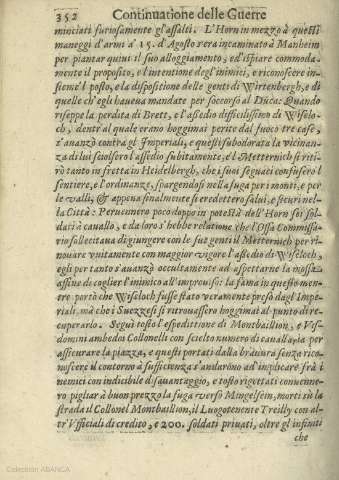 352 Continuatione delle Guerre
minciati furiosamente gl'assalti. L'Horn in mezzo à questi
maneggi d'armi a' 15. d'Agosto s'era incaminato à Manheim
per piantar quiui il suo alloggiamento, ed ispiare commoda-
mente il proposito, e l'intentione degl'inimici, e riconoscere in-
sieme il posto, e la dispositione delle genti di Wirtenbergh, e di
quelle ch'egli haueua mandate per soccorso al Duca: Quando
riseppe la perdita di Brett, e l'assedio difficilissimo di Wiselo-
ch, dentr'al quale erano hoggimai perite dal fuoco tre case,
s'auanzò contra gl'Imperiali, e questi subodorata la vicinan-
za di lui sciolsero l'assedio subitamente, e'l Metternich si riti-
rò tanto in fretta in Heidelbergh, che i suoi seguaci confusero'l
sentiere, e l'ordinanze, spargendosi nella fuga per i monti, e per
le valli, & appena finalmente si credettero salui, e sicuri nel-
la Città: Peruennero poco doppo in potestà dell'Horn soi sol-
dati à cauallo, e da loro s'hebbe relatione che l'Ossa Commissa-
rio sollecitaua di giungere con le sue genti il Metternich per ri-
nouare vnitamente con maggior vigore l'assedio di Wiseloch,
egli per tanto s'auanzò occultamente ad aspettarne la mossa
affine di coglier l'inimico all'improuiso: la fama in questo men-
tre portò che Wiseloch fusse stato veramente preso dagl'Impe-
riali, mà che i Suezzesi si ritrouassero hoggimai al punto di re-
cuperarlo. Seguì tosto l'espeditione di Montbaillion, e Vis-
domini ambedue Collonelli con scielto numero di cauallaria per
assicurare la piazza, e questi portati dalla brauura senza rico-
noscere il contorno à sufficienza s'andarono ad implicare frà i
nemici con indicibile disauantaggio, e tosto rigettati conuenne-
ro pigliar à buon prezzo la fuga verso Mingelsein, morti sù la
strada il Collonel Montbaillion, il Luogotenente Treilly con al-
tr'Vfficiali di credito, e 200. soldati priuati, oltre gl'infiniti
che
Colección ABANCA